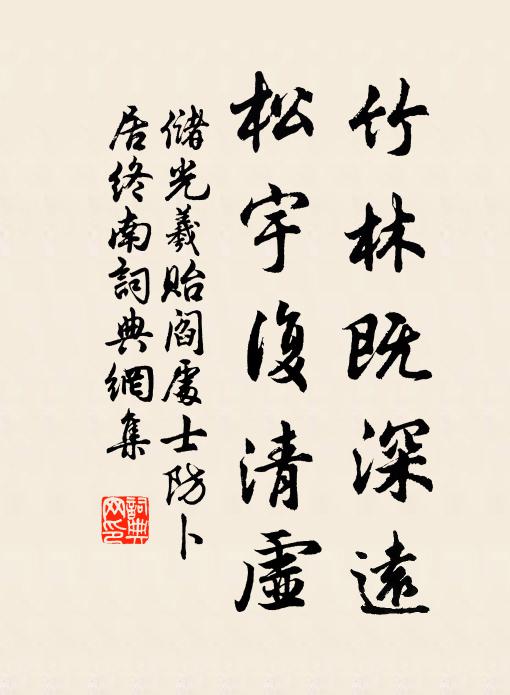 竹林既深遠
松宇復清虛
儲光羲貽閻處士防卜
居終南詞典網集
詞典
网印